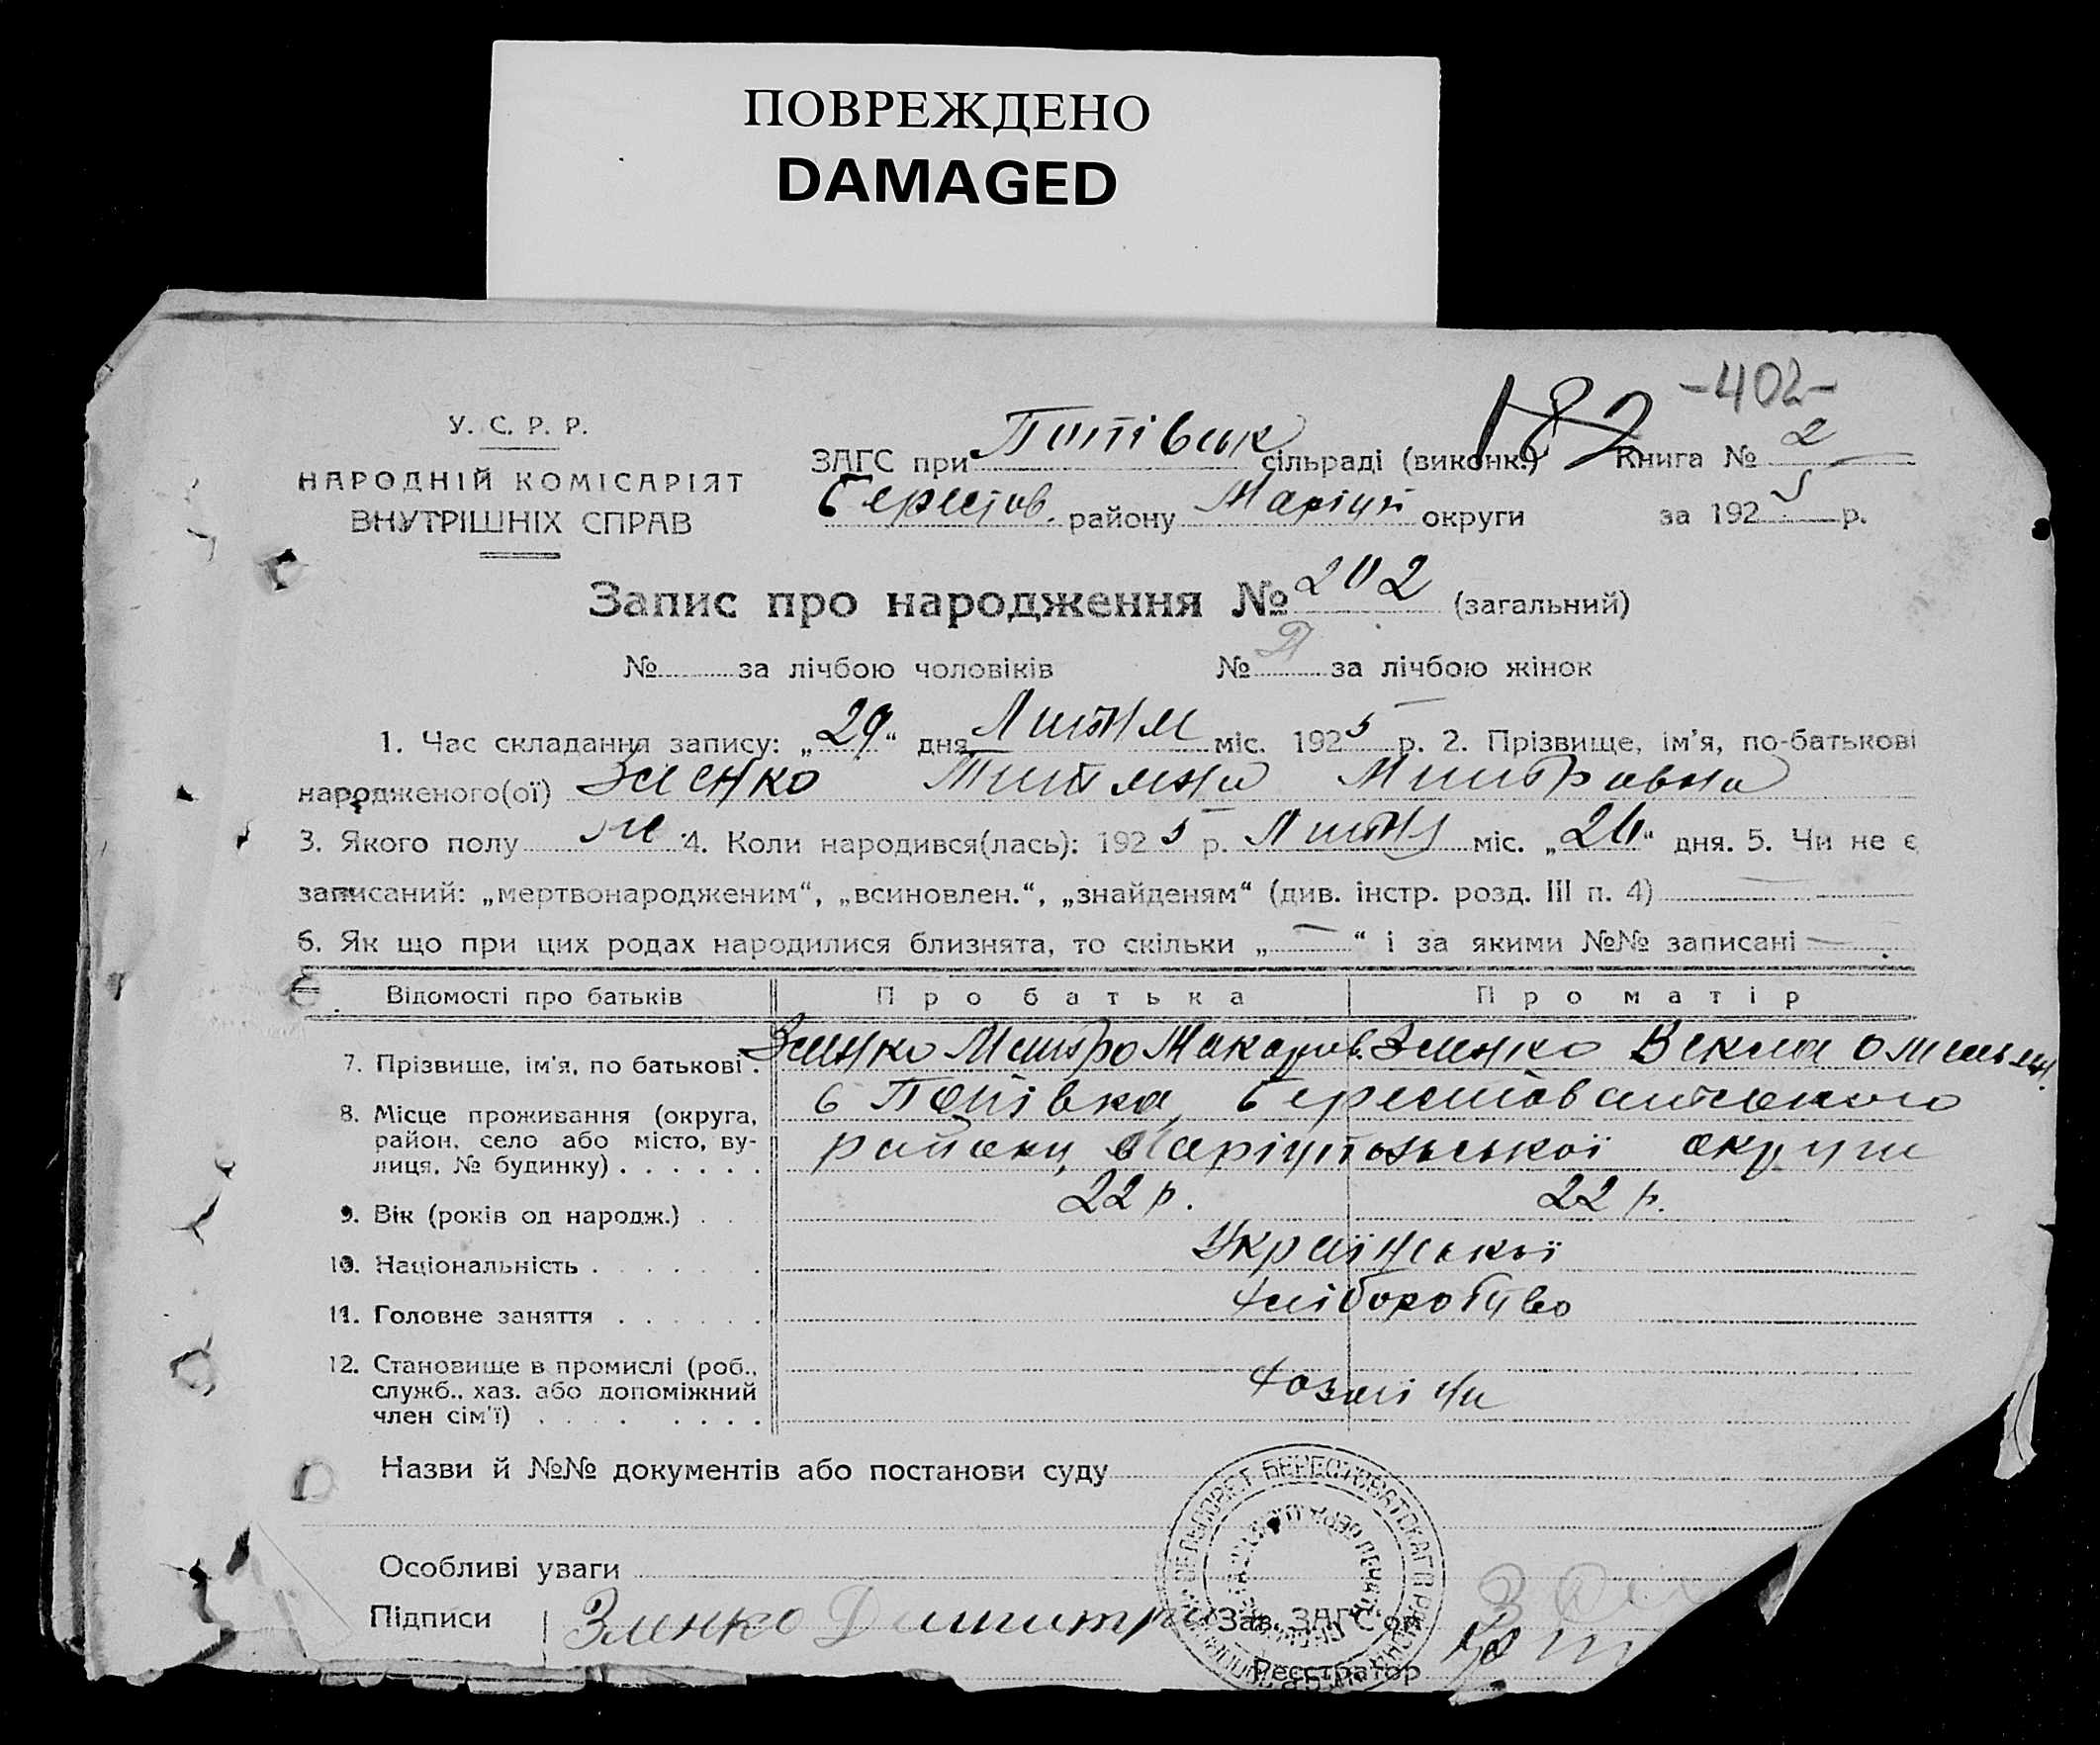 ПОВРЕЖДЕНО
DAMAGED
-402-
182
У. С. Р. Р.
НАРОДНІЙ КОМІСАРІЯТ
ВНУТРІШНІХ СПРАВ
ЗАГС при Попівськ сільраді (виконк.) Книга № 2
Берестов. району Маріуп округи за 1925 р.
Запис про народження № 202 (загальний)
№ за лічбою чоловіків № за лічбою жінок
1. Час складання запису: „29“ дня Липня міс. 1925 р. 2. Прізвище, ім'я, по-батькові
народженого(ої) Зленко Митровна
3. Якого полу 4. Коли народився(лась): 1925 р. Липня міс. „26“ дня. 5. Чи не є
записаний: „мертвонародженим“, „всиновлен.“, „знайденям“ (див. інстр. розд. III п. 4)
6. Як що при цих родах народилися близнята, то скільки „—“ і за якими №№ записані —
Відомості про батьків Про батька Про матір
7. Прізвище, ім'я, по батькові . Зленко Митро Макаров. Зленко Векла Омельян.
8. Місце проживання (округа, район, село або місто, ву-лиця, № будинку) . . . . . . с Попівка, Берестоватського
району, Маріупольської округи
9. Вік (років од народж.) . . 22 р. 22 р.
10. Національність . . . . . . Української
11. Головне заняття . . . . . . хліборобтво
12. Становище в промислі (роб., служб., хаз. або допоміжний член сім'ї) . . . . . . . хозяїни
Назви й №№ документів або постанови суду
Особливі уваги
Підписи Зленко Димитри Зав. ЗАГС'ом
Реєстратор